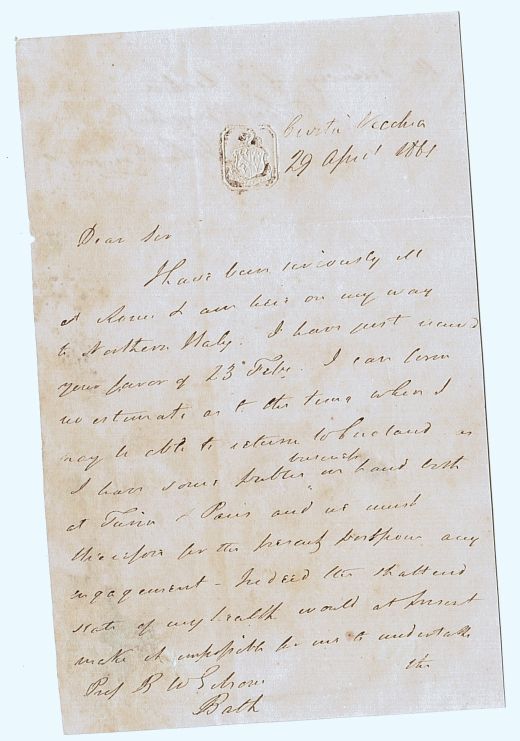 Civita Vecchia
29 April 1861
Dear Sir
I have been seriously ill
at Rome & am here on my way
to Northern Italy. I have just received
your favor of 23d Feby. I can form
no estimate as to the time when I
may be able to return to England as
business
I have some on hand both
at Turin & Paris and we must
therefore for the present postpone any
engagement - Indeed the shattered
state of my health would at present
make it impossible for me to undertake
the
Prof R W
Bath